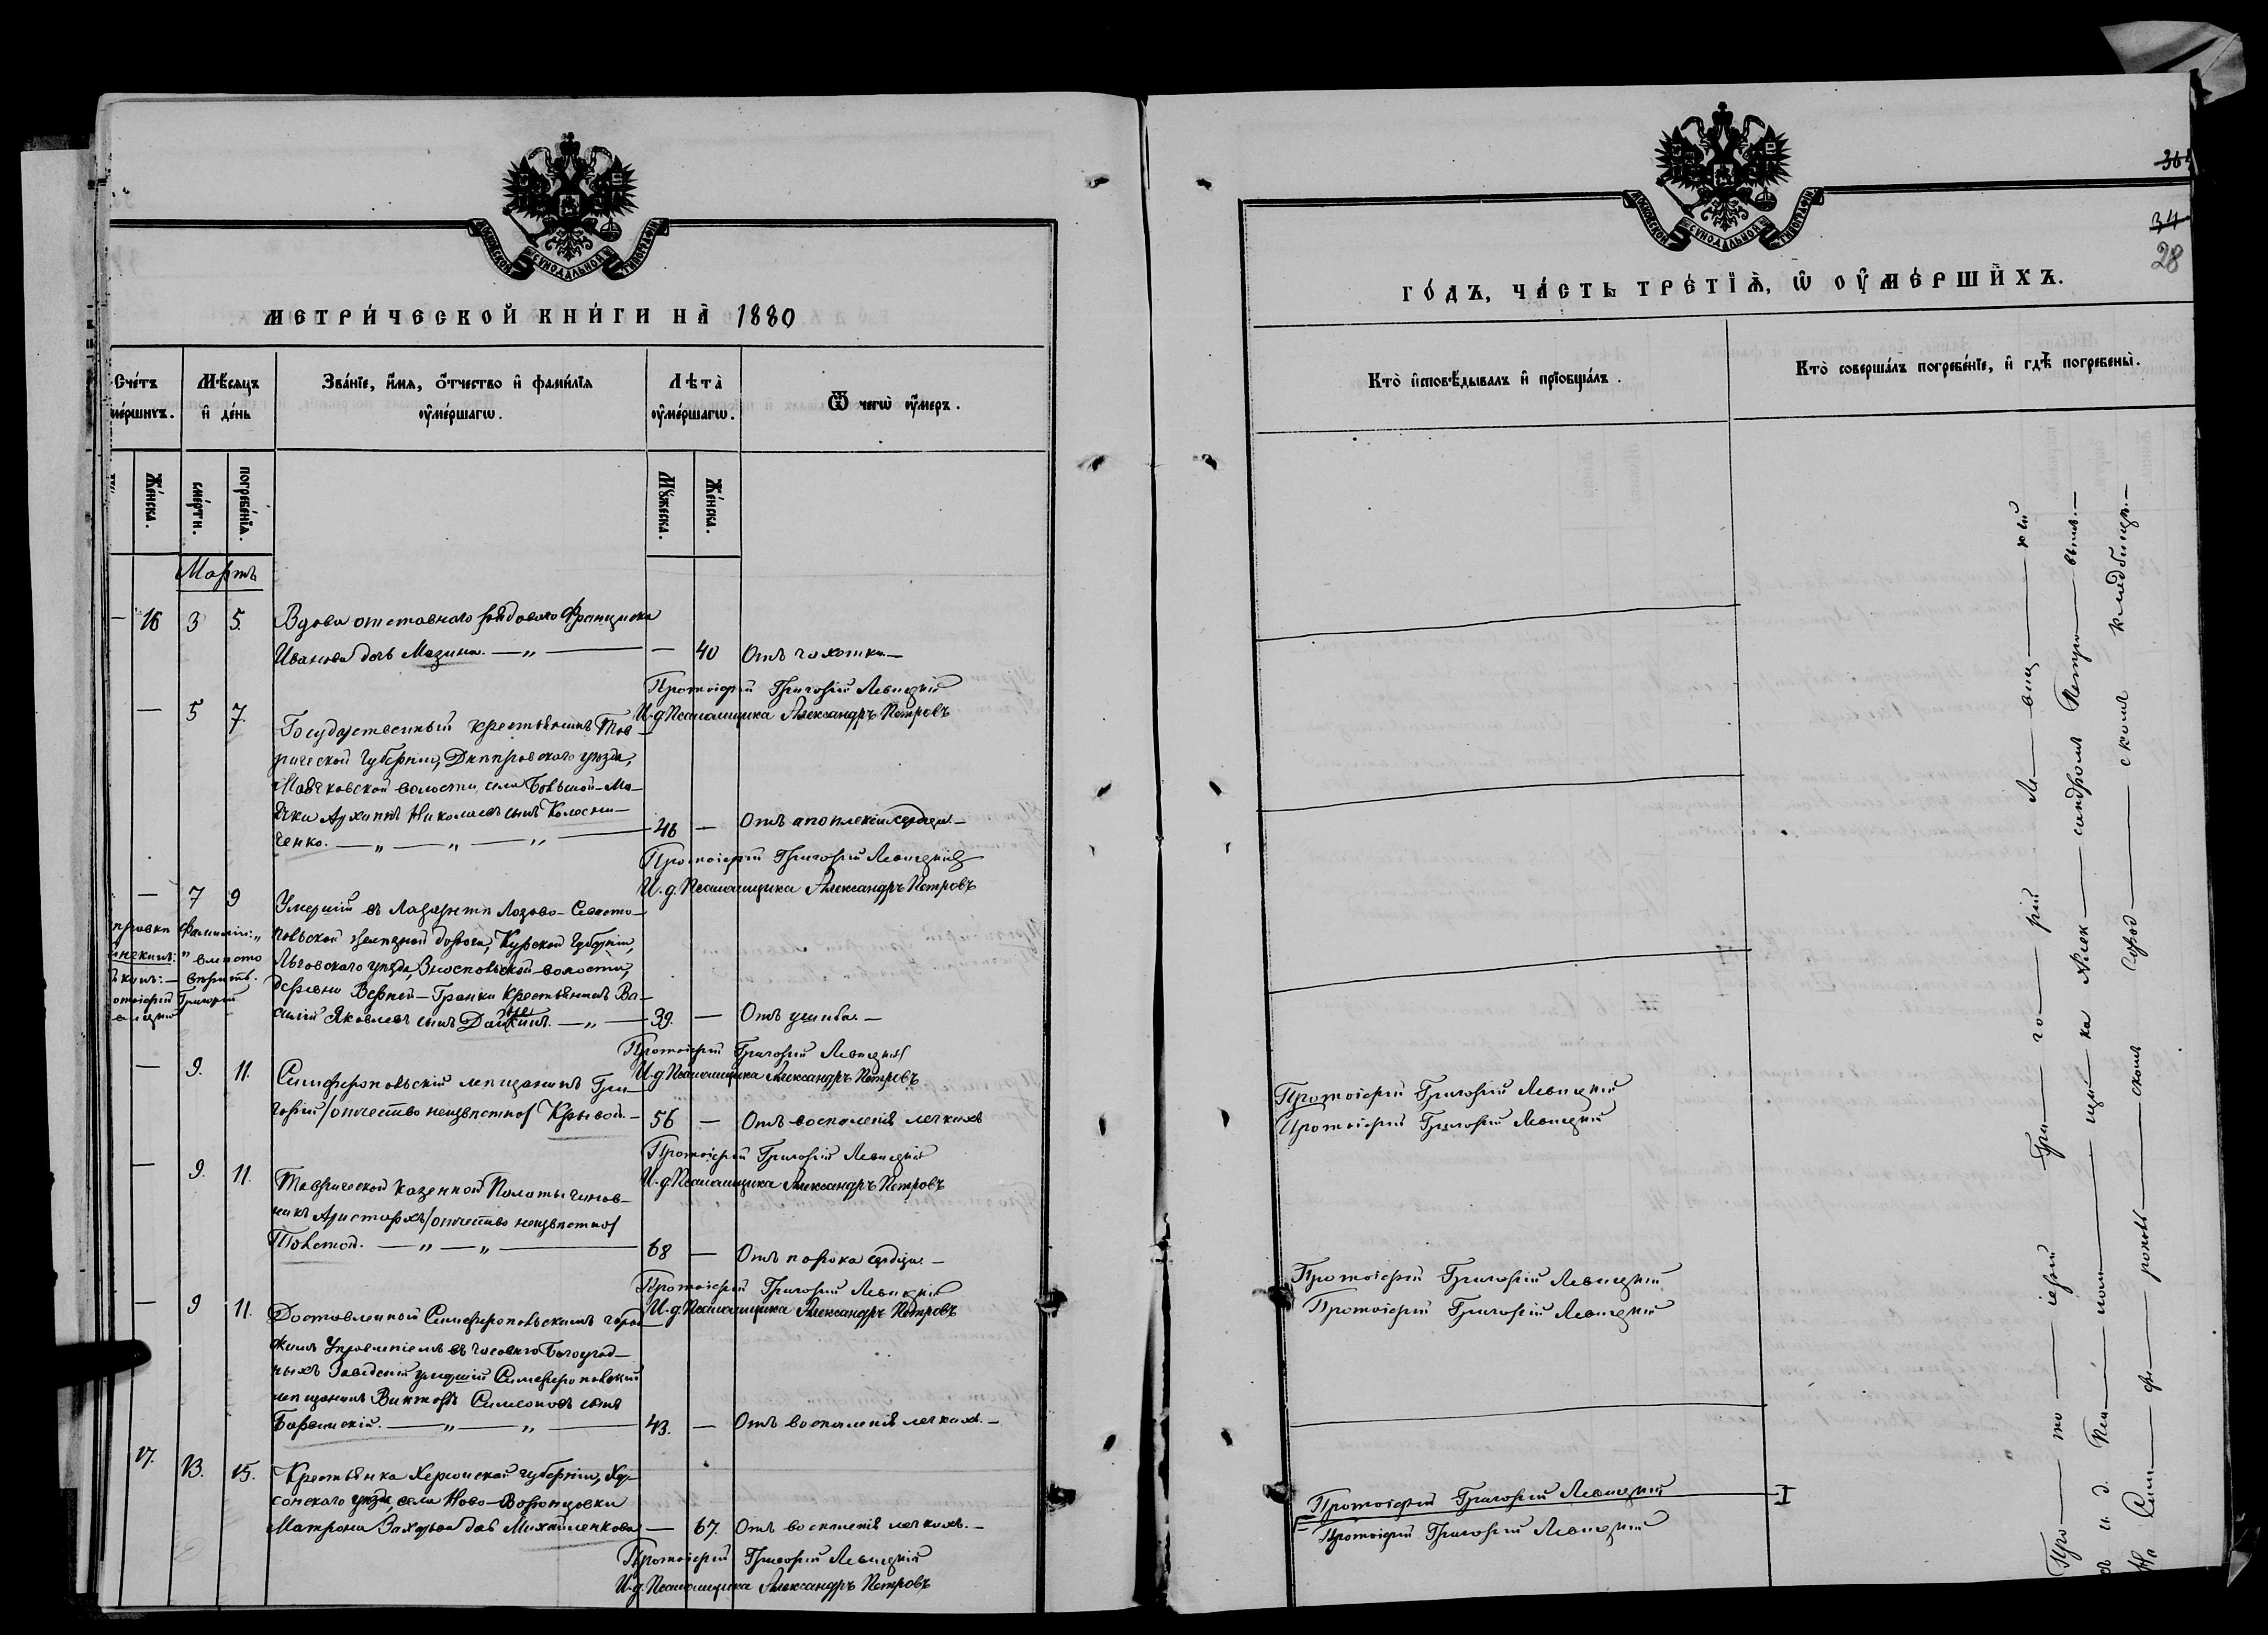 МОСКОВСКОЙ СѴНОДАЛЬНОЙ ТИПОГРАФІИ
МЕТРИ́ЧЕСКОЙ КНИ́ГИ НА̀ 1880
Сче́тъ
ме́ршихъ.
Мѣ́сяцъ
и҆ де́нь
Зва́нїе, и҆́мѧ, ѻ҆́тчество и҆ фами́лїѧ
ᲂу҆ме́ршагѡ.
Лѣта̀
ᲂу҆ме́ршагѡ.
Ѿ чегѡ̀ ᲂу҆́меръ.
Же́нска.
сме́рти.
погребе́нїѧ.
Мꙋ́жеска.
Же́нска.
Мартъ
— 16 3 5. Вдова отставнаго рядоваго Франциска
Иванова дочь Мазина. — „ — — 40 Отъ чахотки —
Протоіерей Григорій Левицкій
И. д. Псаломщика Александръ Петровъ
— 5 7. Государственный крестьянинъ Тав-
рической Губерніи, Днѣпровскаго уѣзда,
Маячковской волости, села Большой-Ма-
ячки Архипъ Николаевъ сынъ Колесни-
ченко. — „ — „ — „ — 46 — Отъ апоплексіи сердца —
Протоіерей Григорій Левицкій
И. д. Псаломщика Александръ Петровъ
— 7 9 Умершій въ Лазаретѣ Лозово-Севасто-
польской желѣзной дороги, Курской Губерніи,
Льговскаго уѣзда, волости,
деревни Верхней-Гранки Крестьянинъ Ва-
силій Яковлевъ сынъ — „ — 39. — Отъ ушиба —
фамиліи: „
" вмѣсто
вѣрить.
Григорій
Протоіерей Григорій Левицкій
И. д. Псаломщика Александръ Петровъ
— 9. 11. Симферопольскій мѣщанинъ Гри-
горій /отчество неизвѣстно/ Крывой. — 56 — Отъ воспаленія легкихъ
Протоіерей Григорій Левицкій
И. д. Псаломщика Александръ Петровъ
— 9. 11. Таврической Казенной Палаты чинов-
никъ Аристархъ /отчество неизвѣстно/
Толстой. — „ — „ — 68 — Отъ порока сердца —
Протоіерей Григорій Левицкій
И. д. Псаломщика Александръ Петровъ
— 9 11. Доставленной Симферопольскимъ город-
скимъ Управленіемъ въ часовню Богоугод-
ныхъ Заведеній умершій Симферопольскій
мѣщанинъ Викторъ Симеоновъ сынъ
— „ — „ — 43. — Отъ воспаленія легкихъ —
17. 13. 15. Крестьянка Херсонской губерніи, Хер-
сонскаго уѣзда, села Ново-Воронцовки
Матрона Захарьева дочь Михайленкова — 67. Отъ воспаленія легкихъ —
Протоіерей Григорій Левицкій
И. д. Псаломщика Александръ Петровъ
МОСКОВСКОЙ СѴНОДАЛЬНОЙ ТИПОГРАФІИ
34
28
ГО́ДЪ, ЧА́СТЬ ТРЕ́ТЇѦ, Ѡ ОУ҆МЕ́РШИХЪ.
Кто̀ и҆сповѣ́дывалъ и҆ прїобща́лъ.
Кто̀ соверша́лъ погребе́нїе, и҆ гдѣ̀ погребены̀.
Протоіерей Григорій Левицкій
Протоіерей Григорій Левицкій
Протоіерей Григорій Левицкій
Протоіерей Григорій Левицкій
Протоіерей Григорій Левицкій
Протоіерей Григорій Левицкій
Про— то— іерей Гри— го— рій Ле— виц— кій
съ и. д. Пса— лом— щи— ка Алек— сандромъ Петро— вымъ. —
На Сим— фе— рополь— скомъ город— скомъ кладбищѣ. —